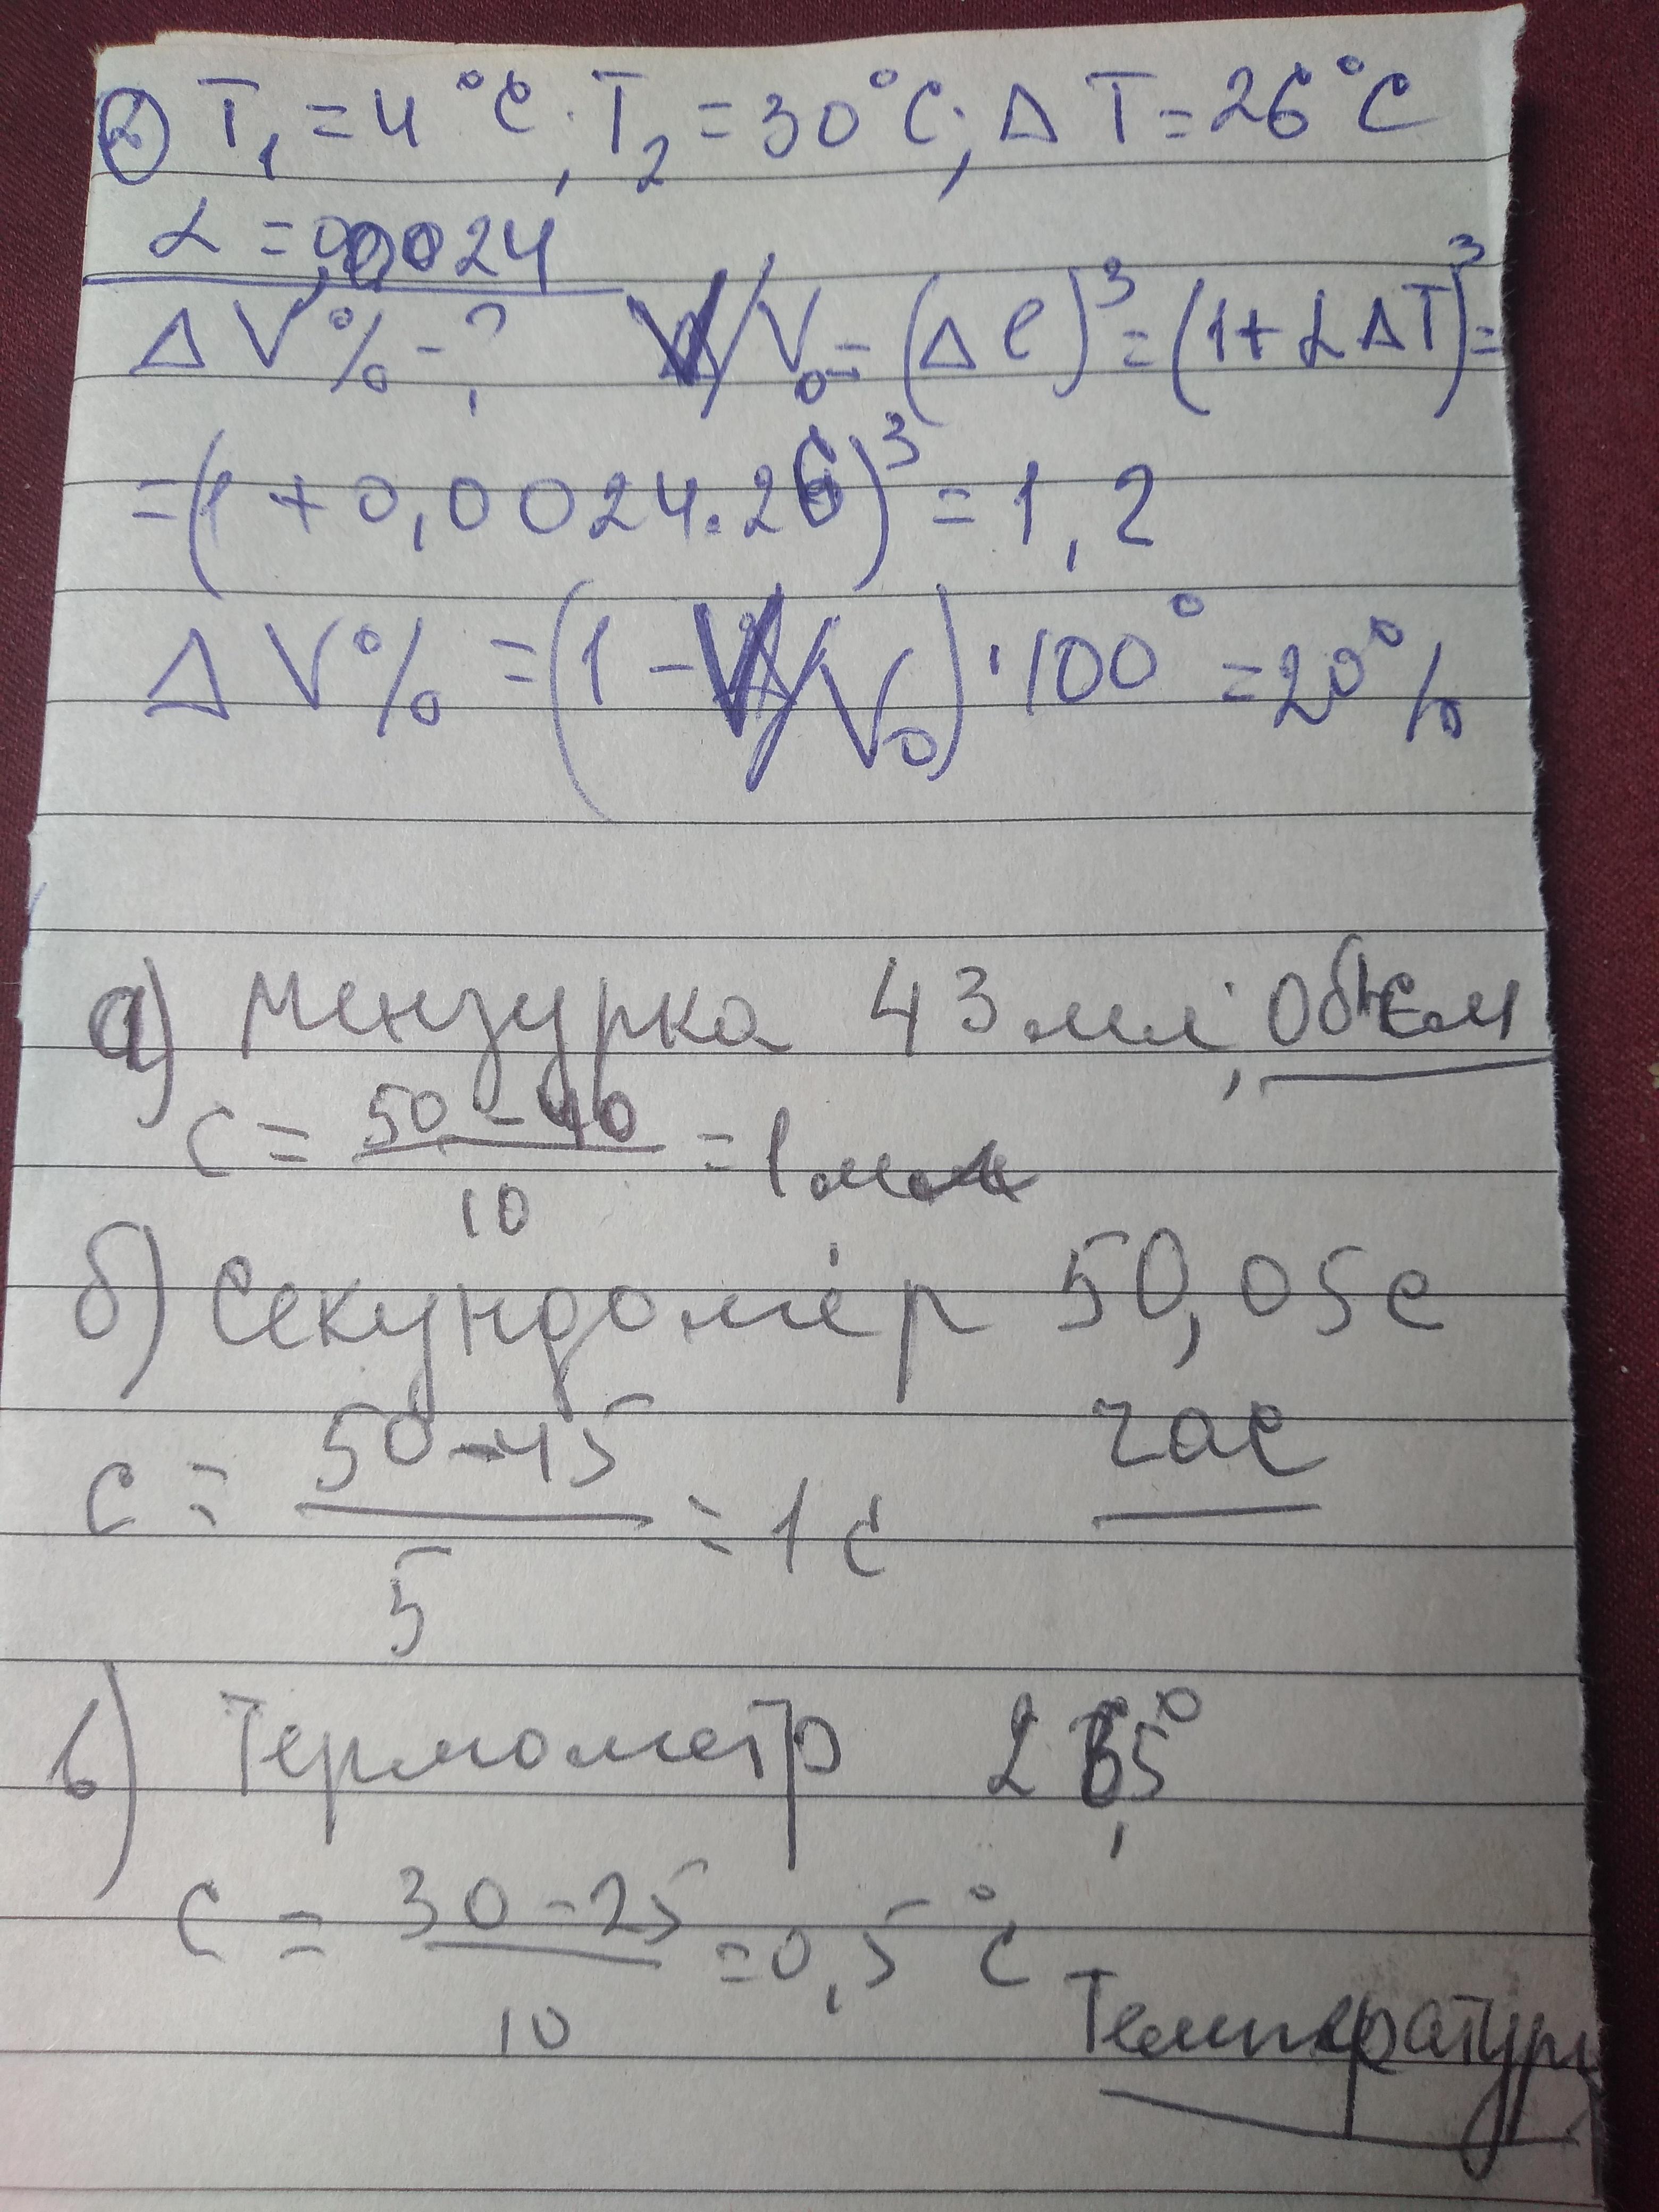 ② T₁ = 4 °C; T₂ = 30°C; Δ T = 26°C
α = 0,0024
Δ V % - ? V/V₀ = (Δ ℓ)³ = (1 + α Δ T)³ =
= (1 + 0,0024 · 26)³ = 1,2
Δ V % = (1 - V/V₀) · 100° = 20%
а) Мензурка 43 мл; Объем
c = (50 - 40)/10 = 1 мл
б) Секундомер 50,05 с
c = (50 - 45)/5 = 1 с час
в) Термометр
c = (30 - 25)/10 = 0,5 °C